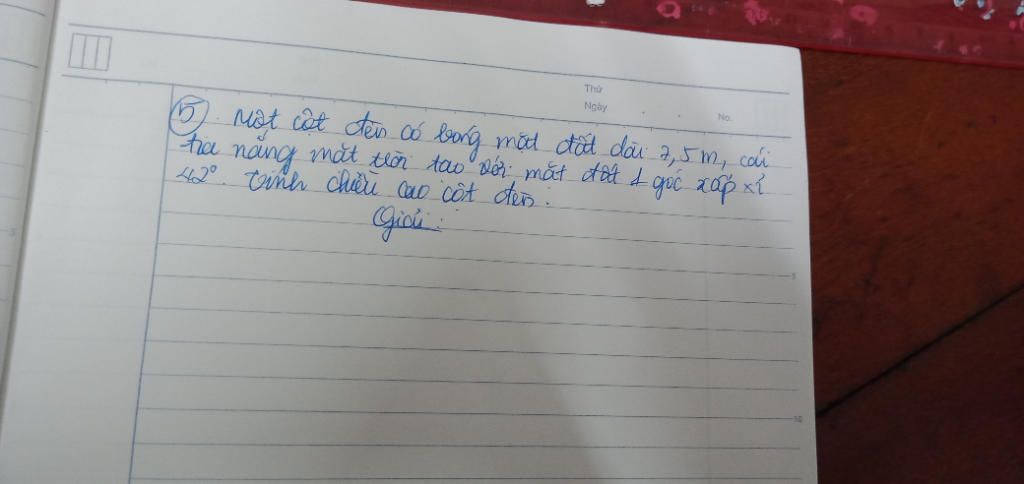 Thứ
Ngày . . No.
5. Một cột đèn có bóng mặt đất dài 7,5m, cái
tia nắng mặt trời tạo với mặt đất 1 góc xấp xỉ
42°. Tính chiều cao cột đèn.
Giải:
5
10